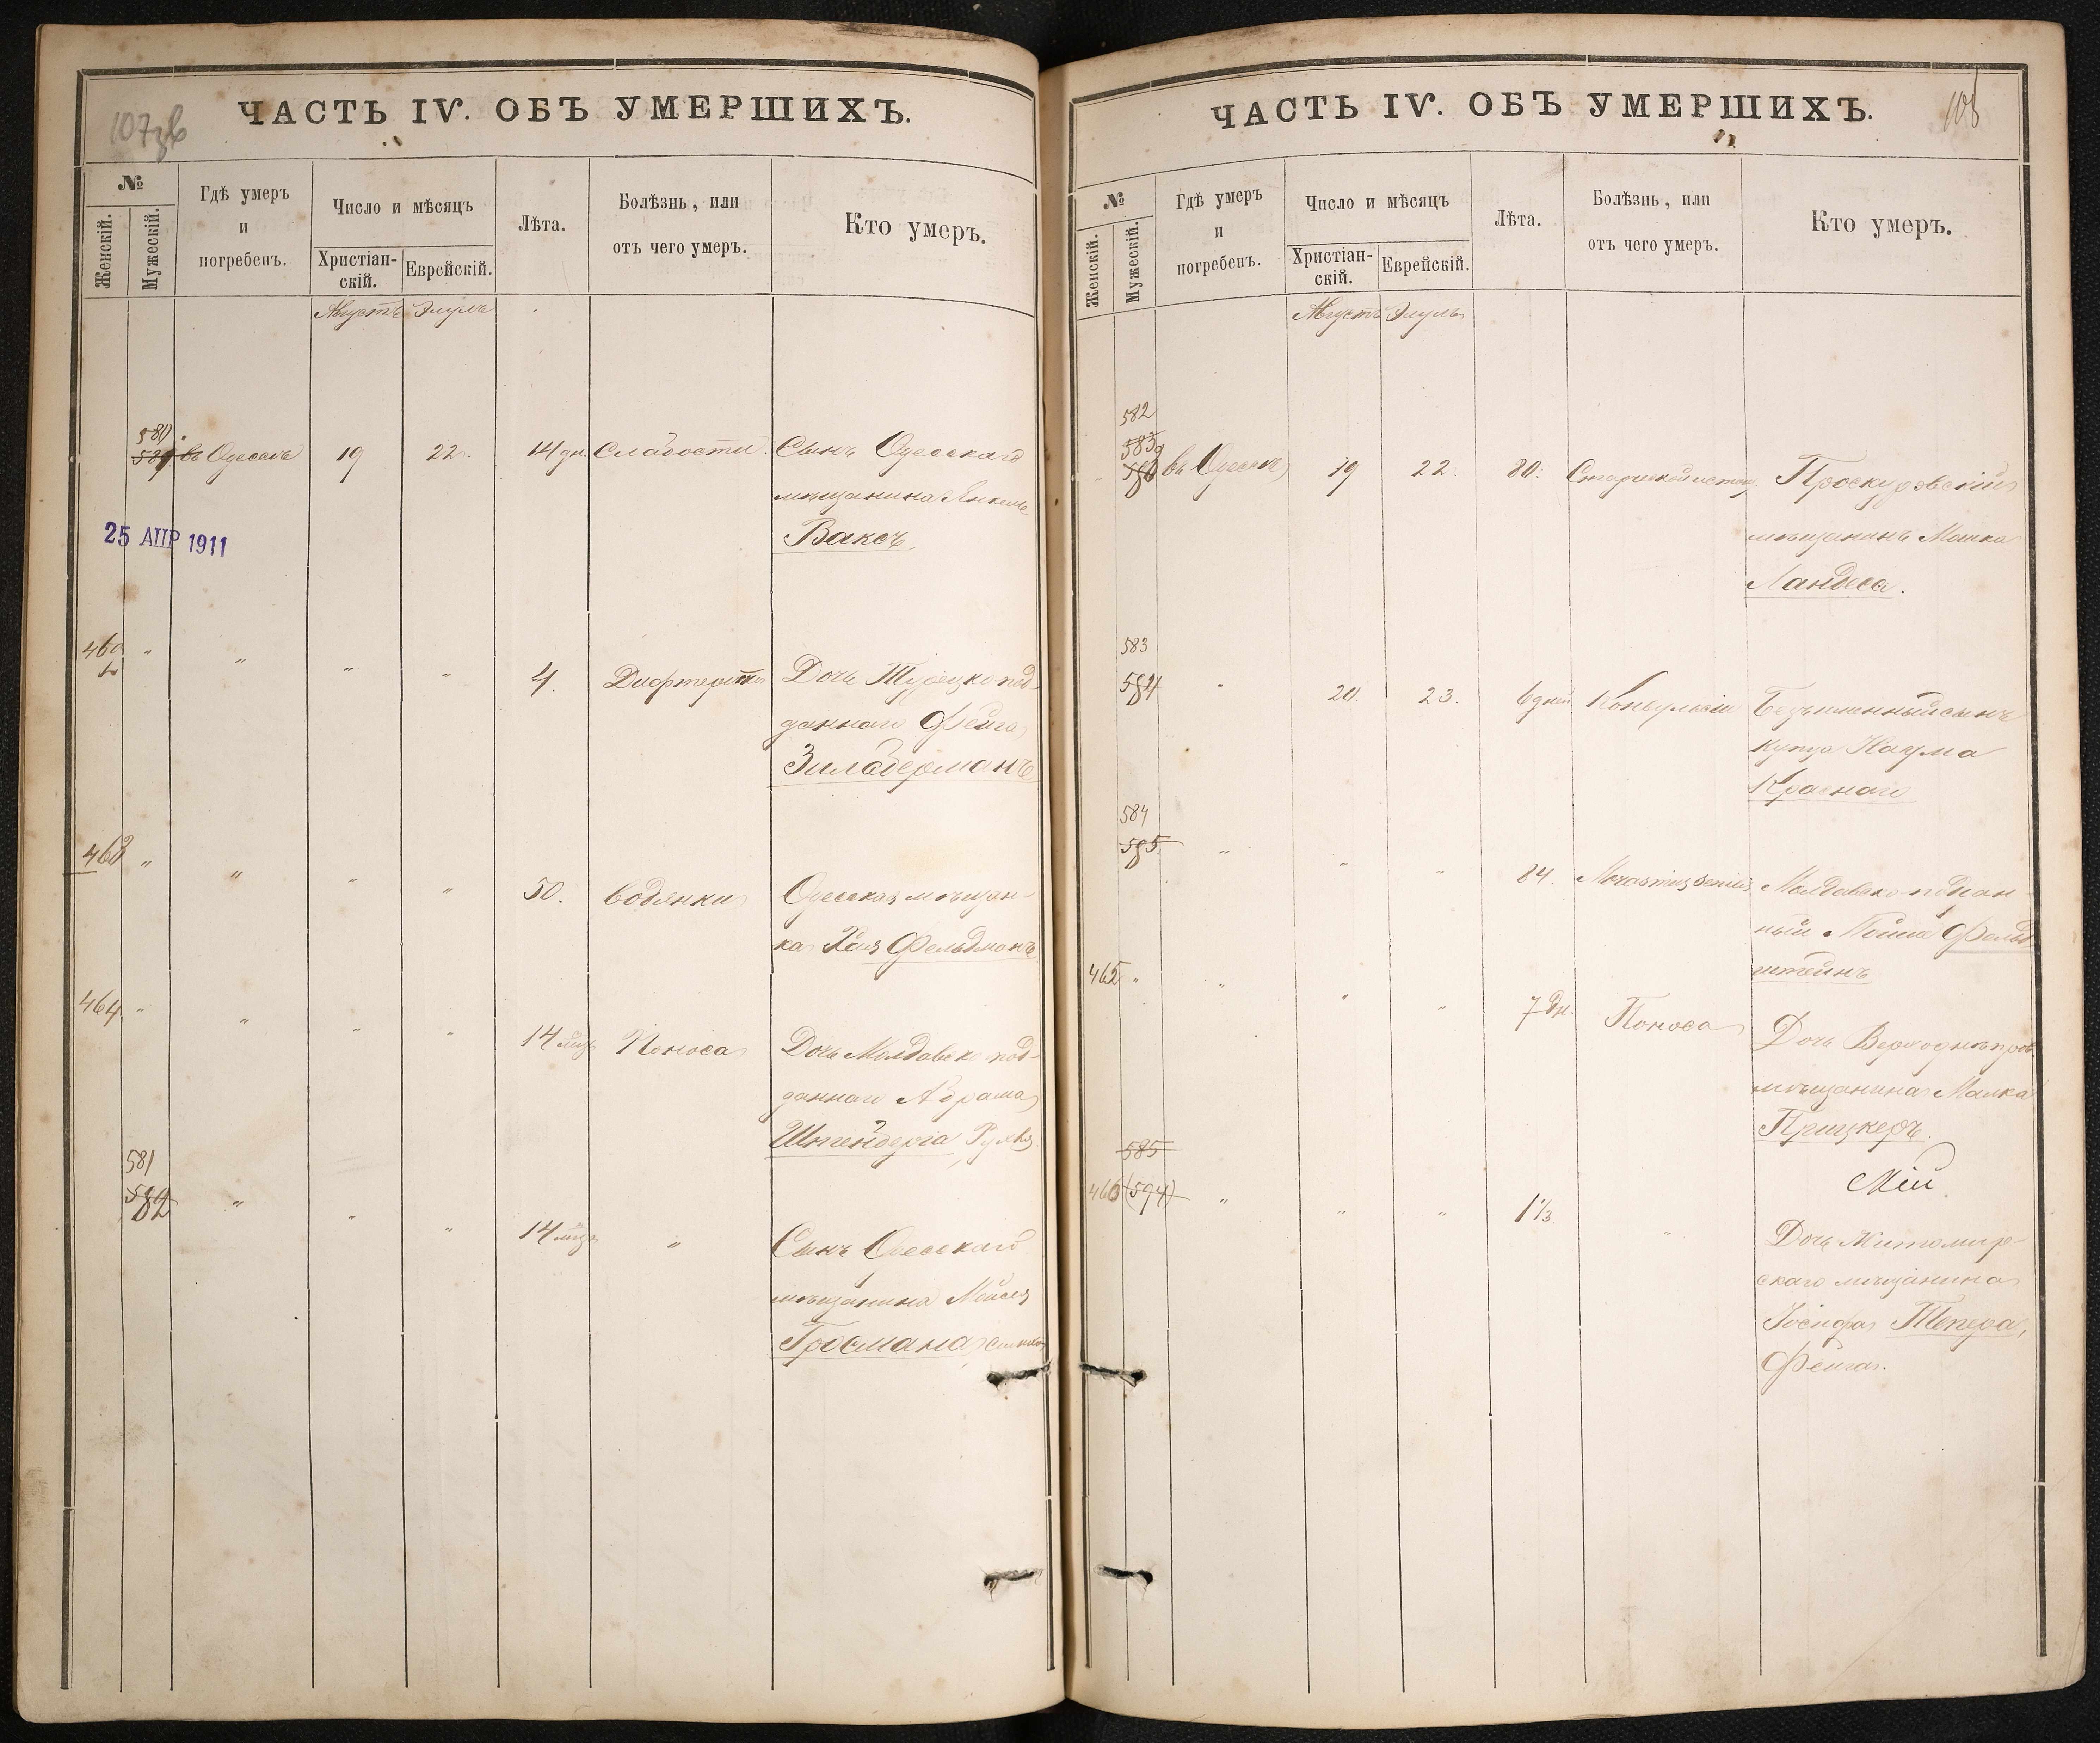 107 зв
ЧАСТЬ IV. ОБЪ УМЕРШИХЪ.
№
Женскій.
Мужескій.
Гдѣ умеръ
и
погребенъ.
Число и мѣсяцъ
Христіан-
скій.
Еврейскій.
Лѣта.
Болѣзнь, или
отъ чего умеръ.
Кто умеръ.
Августъ Элулъ
580
въ Одессѣ 19 22. 14 дн. Слабости. Сынъ Одесскаго
мѣщанина Янкель
Ваксъ
25 АПР 1911
" " " " 4. Дифтерита Дочь Турецко под-
даннаго Фейга
Зильберманъ
463 " " " " 50. Водянки Одесская мѣщан-
ка Хая Фельдманъ
464 " " " " 14 мѣс. Поноса Дочь Молдавско под-
даннаго Абрама
Штенберга
581
582 " " " 14 мѣс. " Сынъ Одесскаго
мѣщанина Мойсея
Гросмана
108
ЧАСТЬ IV. ОБЪ УМЕРШИХЪ.
№
Женскій.
Мужескій.
Гдѣ умеръ
и
погребенъ.
Число и мѣсяцъ
Христіан-
скій.
Еврейскій.
Лѣта.
Болѣзнь, или
отъ чего умеръ.
Кто умеръ.
Августъ Элулъ
582
583
въ Одессѣ 19 22. 80. Проскуровскій
мѣщанинъ
Ландеса.
583
584 " 20 23. 6 дней Конвульсіи Безъименный сынъ
купца Наума
Краснаго
584
585 " " " 84. Marasmus senilis Молдавско поддан-
ный Мойше Фельд
штейнъ
465 " " " " 7 дн. Поноса Дочь Верходнѣпров.
мѣщанина Малка
Прицкеръ.
585
466 (594) " " " 1 1/3. " Дочь Житомир-
скаго мѣщанина
Іосифа Тепера,
Фейга.